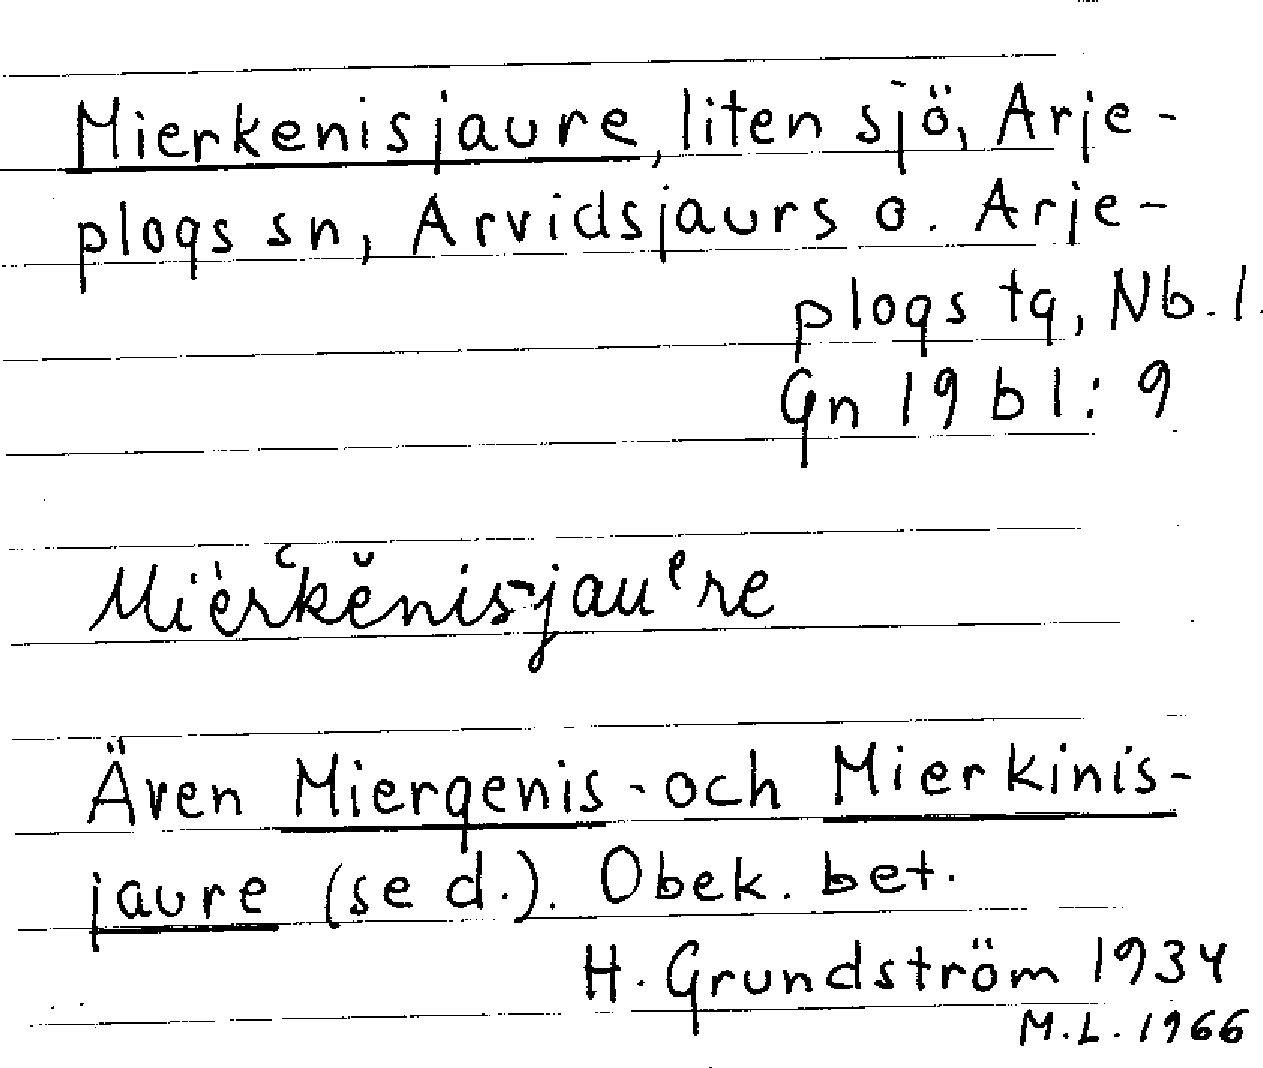 Mierkenisjaure, liten sjö, Arje-
plogs sn, Arvidsjaurs o. Arje-
plogs tg, Nb. l.
Gn 19 bl: 9
Miėrʿkĕnis-jauᵉre
Även Miergenis- och Mierkinis-
jaure (se d.). Obek. bet.
H. Grundström 1934
M.L. 1966